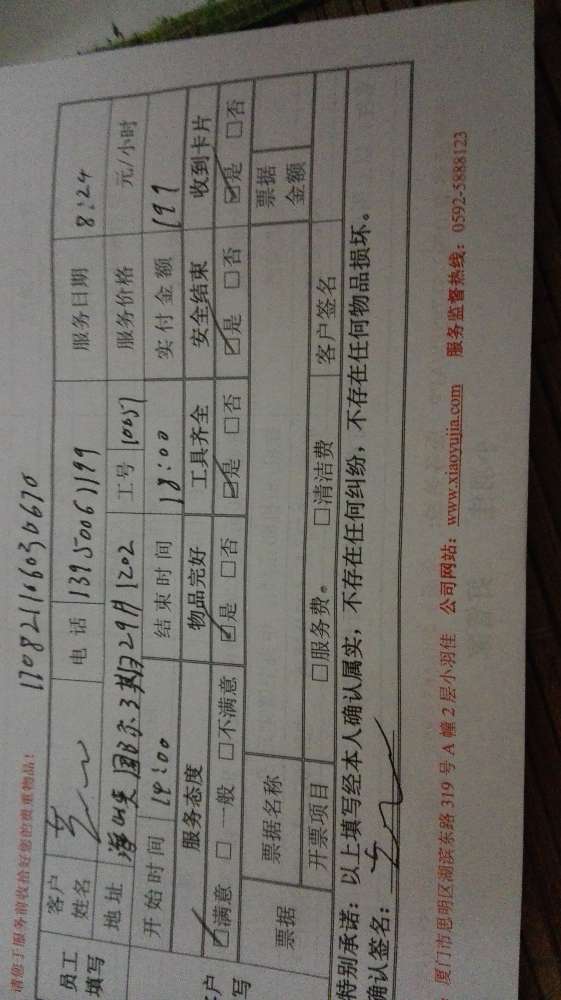 请您于服务前收恰好您的贵重物品！
170821106030670
员工填写
客户姓名 电话 13950061199 服务日期 8:24
地址 海峡国际3期29# 1202 工号 10057 服务价格 元/小时
开始时间 14:00 结束时间 18:00 实付金额 199
服务态度 物品完好 工具齐全 安全结束 收到卡片
☑满意 □一般 □不满意 ☑是 □否 ☑是 □否 ☑是 □否 ☑是 □否
票据 票据名称 票据金额
开票项目 □服务费。 □清洁费 客户签名
特别承诺：以上填写经本人确认属实，不存在任何纠纷，不存在任何物品损坏。
确认签名：
厦门市思明区湖滨东路 319 号 A 幢 2 层小羽佳 公司网站：www.xiaoyujia.com 服务监督热线：0592-5888123